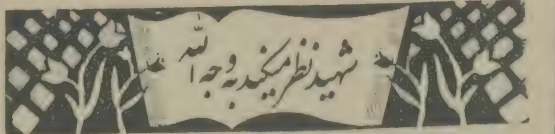 شهید نظر میکند به وجه‌الله